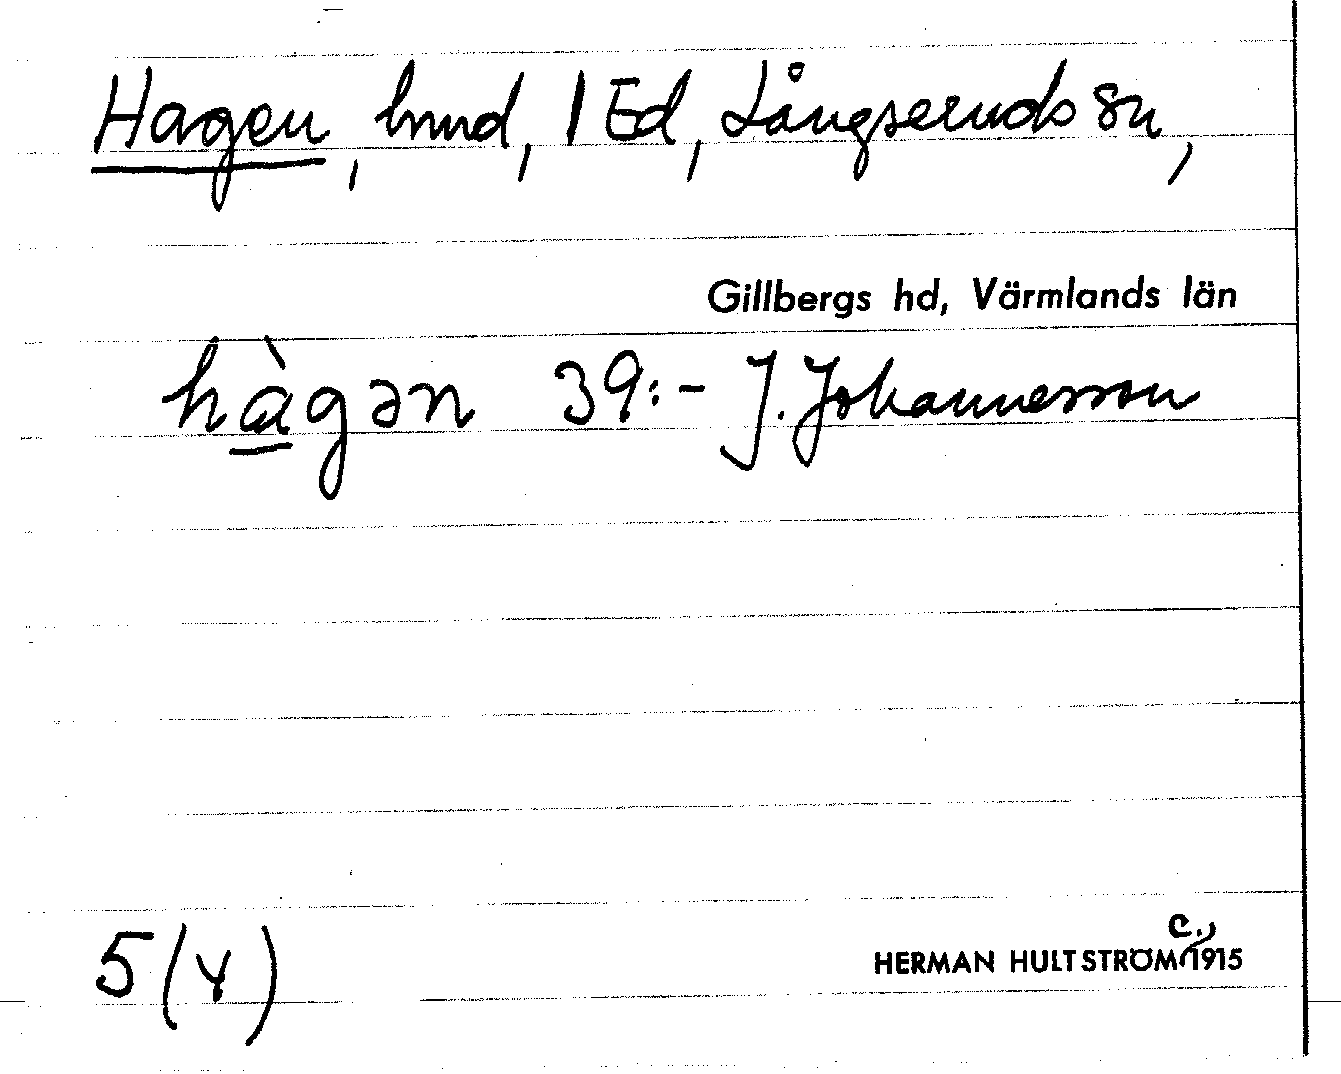 Hagen, hmd, 1 Ed, Långseruds sn,
Gillbergs hd, Värmlands län
hàgən 39:- J. Johannesson
5(4)
HERMAN HULTSTRÖM c. 1915